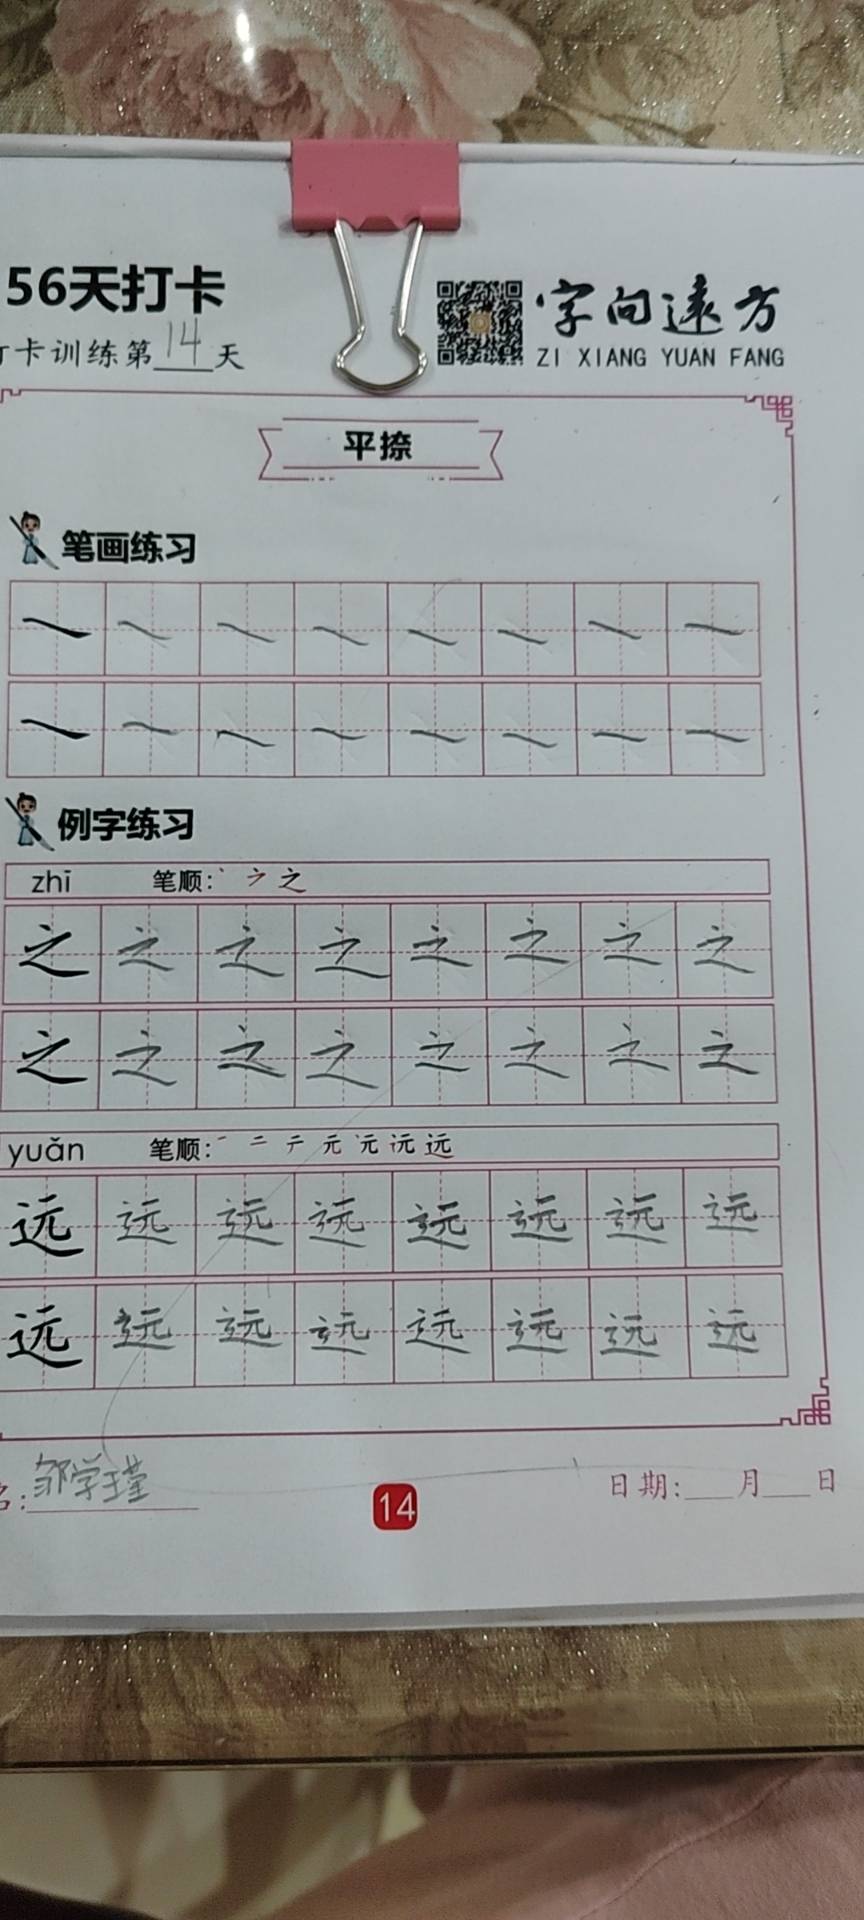 56天打卡
字向遠方
卡训练第14天
ZI XIANG YUAN FANG
平捺
笔画练习
例字练习
zhī 笔顺: 之
之 之 之 之 之 之 之 之
之 之 之 之 之 之 之 之
yuǎn 笔顺: 一 二 テ 元 元 远 远
远 远 远 远 远 远 远 远
远 远 远 远 远 远 远 远
名: 邹学瑾
14
日期:___月___日